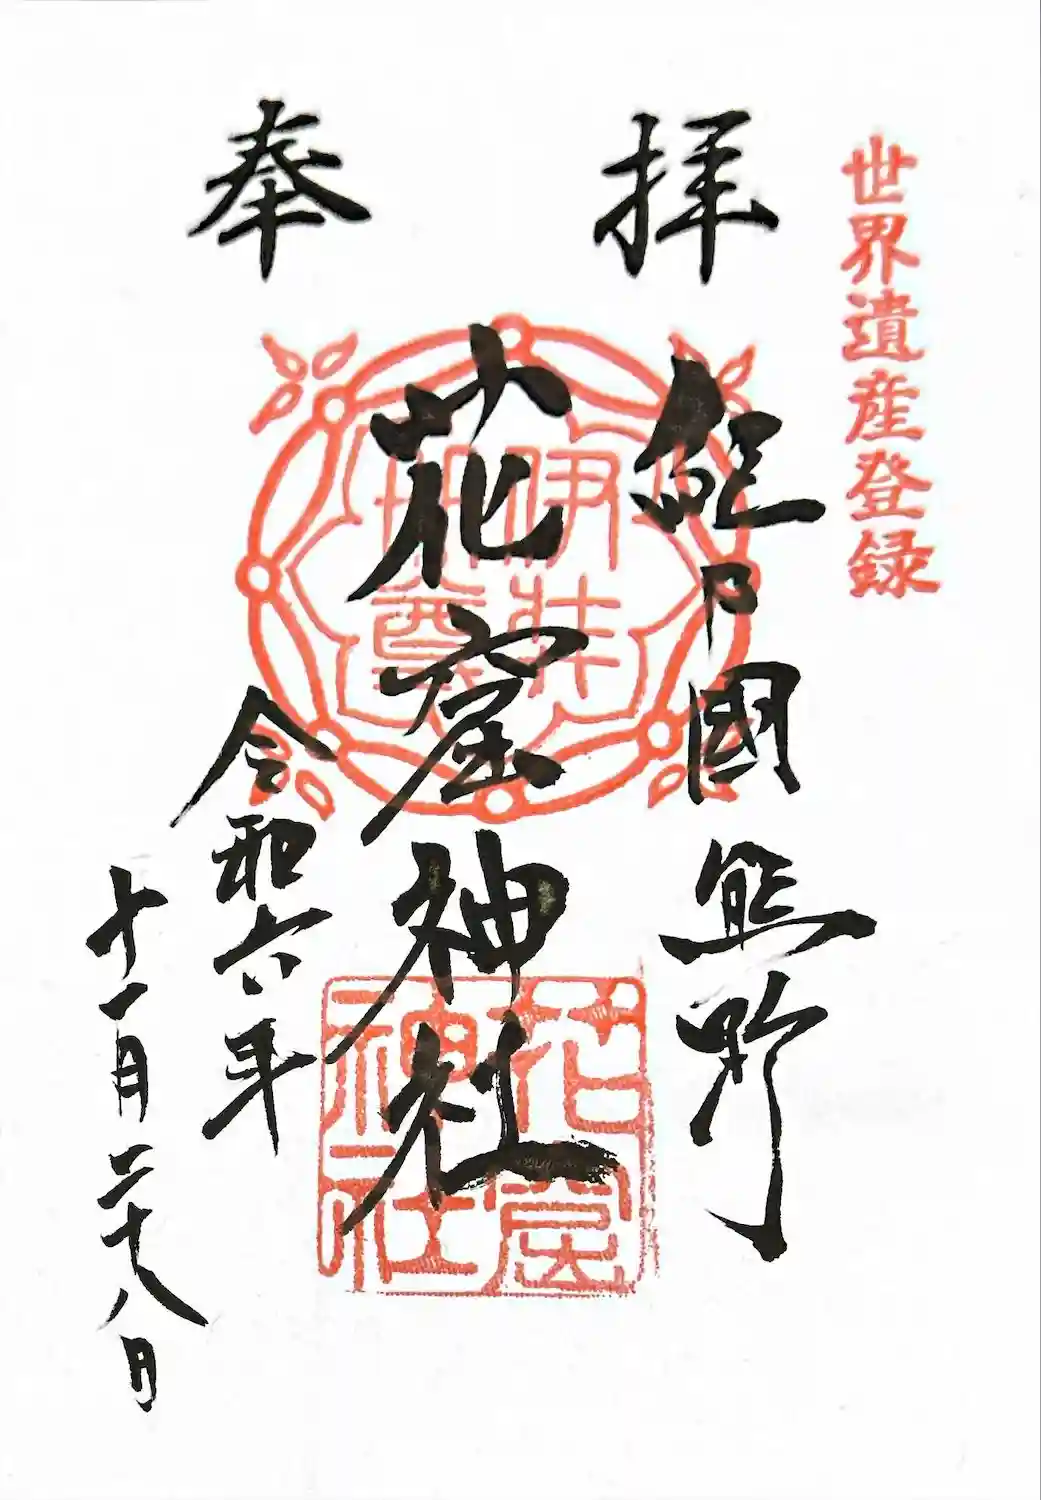 世界遺産登録
奉拝
紀伊國熊野
花窟神社
令和六年
十一月二十八日
伊弉
冊尊
花窟
神社